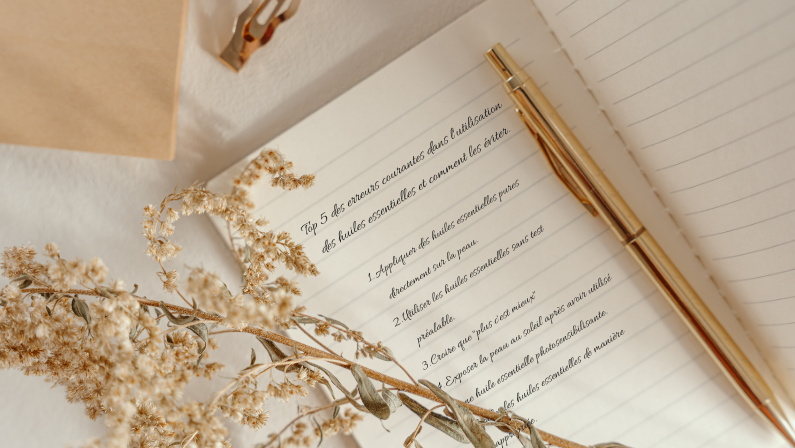 Top 5 des erreurs courantes dans l'utilisation
des huiles essentielles et comment les éviter.
1.Appliquer des huiles essentielles pures
directement sur la peau.
2.Utiliser les huiles essentielles sans test
préalable.
3.Croire que "plus c'est mieux"
4.Exposer la peau au soleil après avoir utilisé
une huile essentielle photosensibilisante.
les huiles essentielles de manière